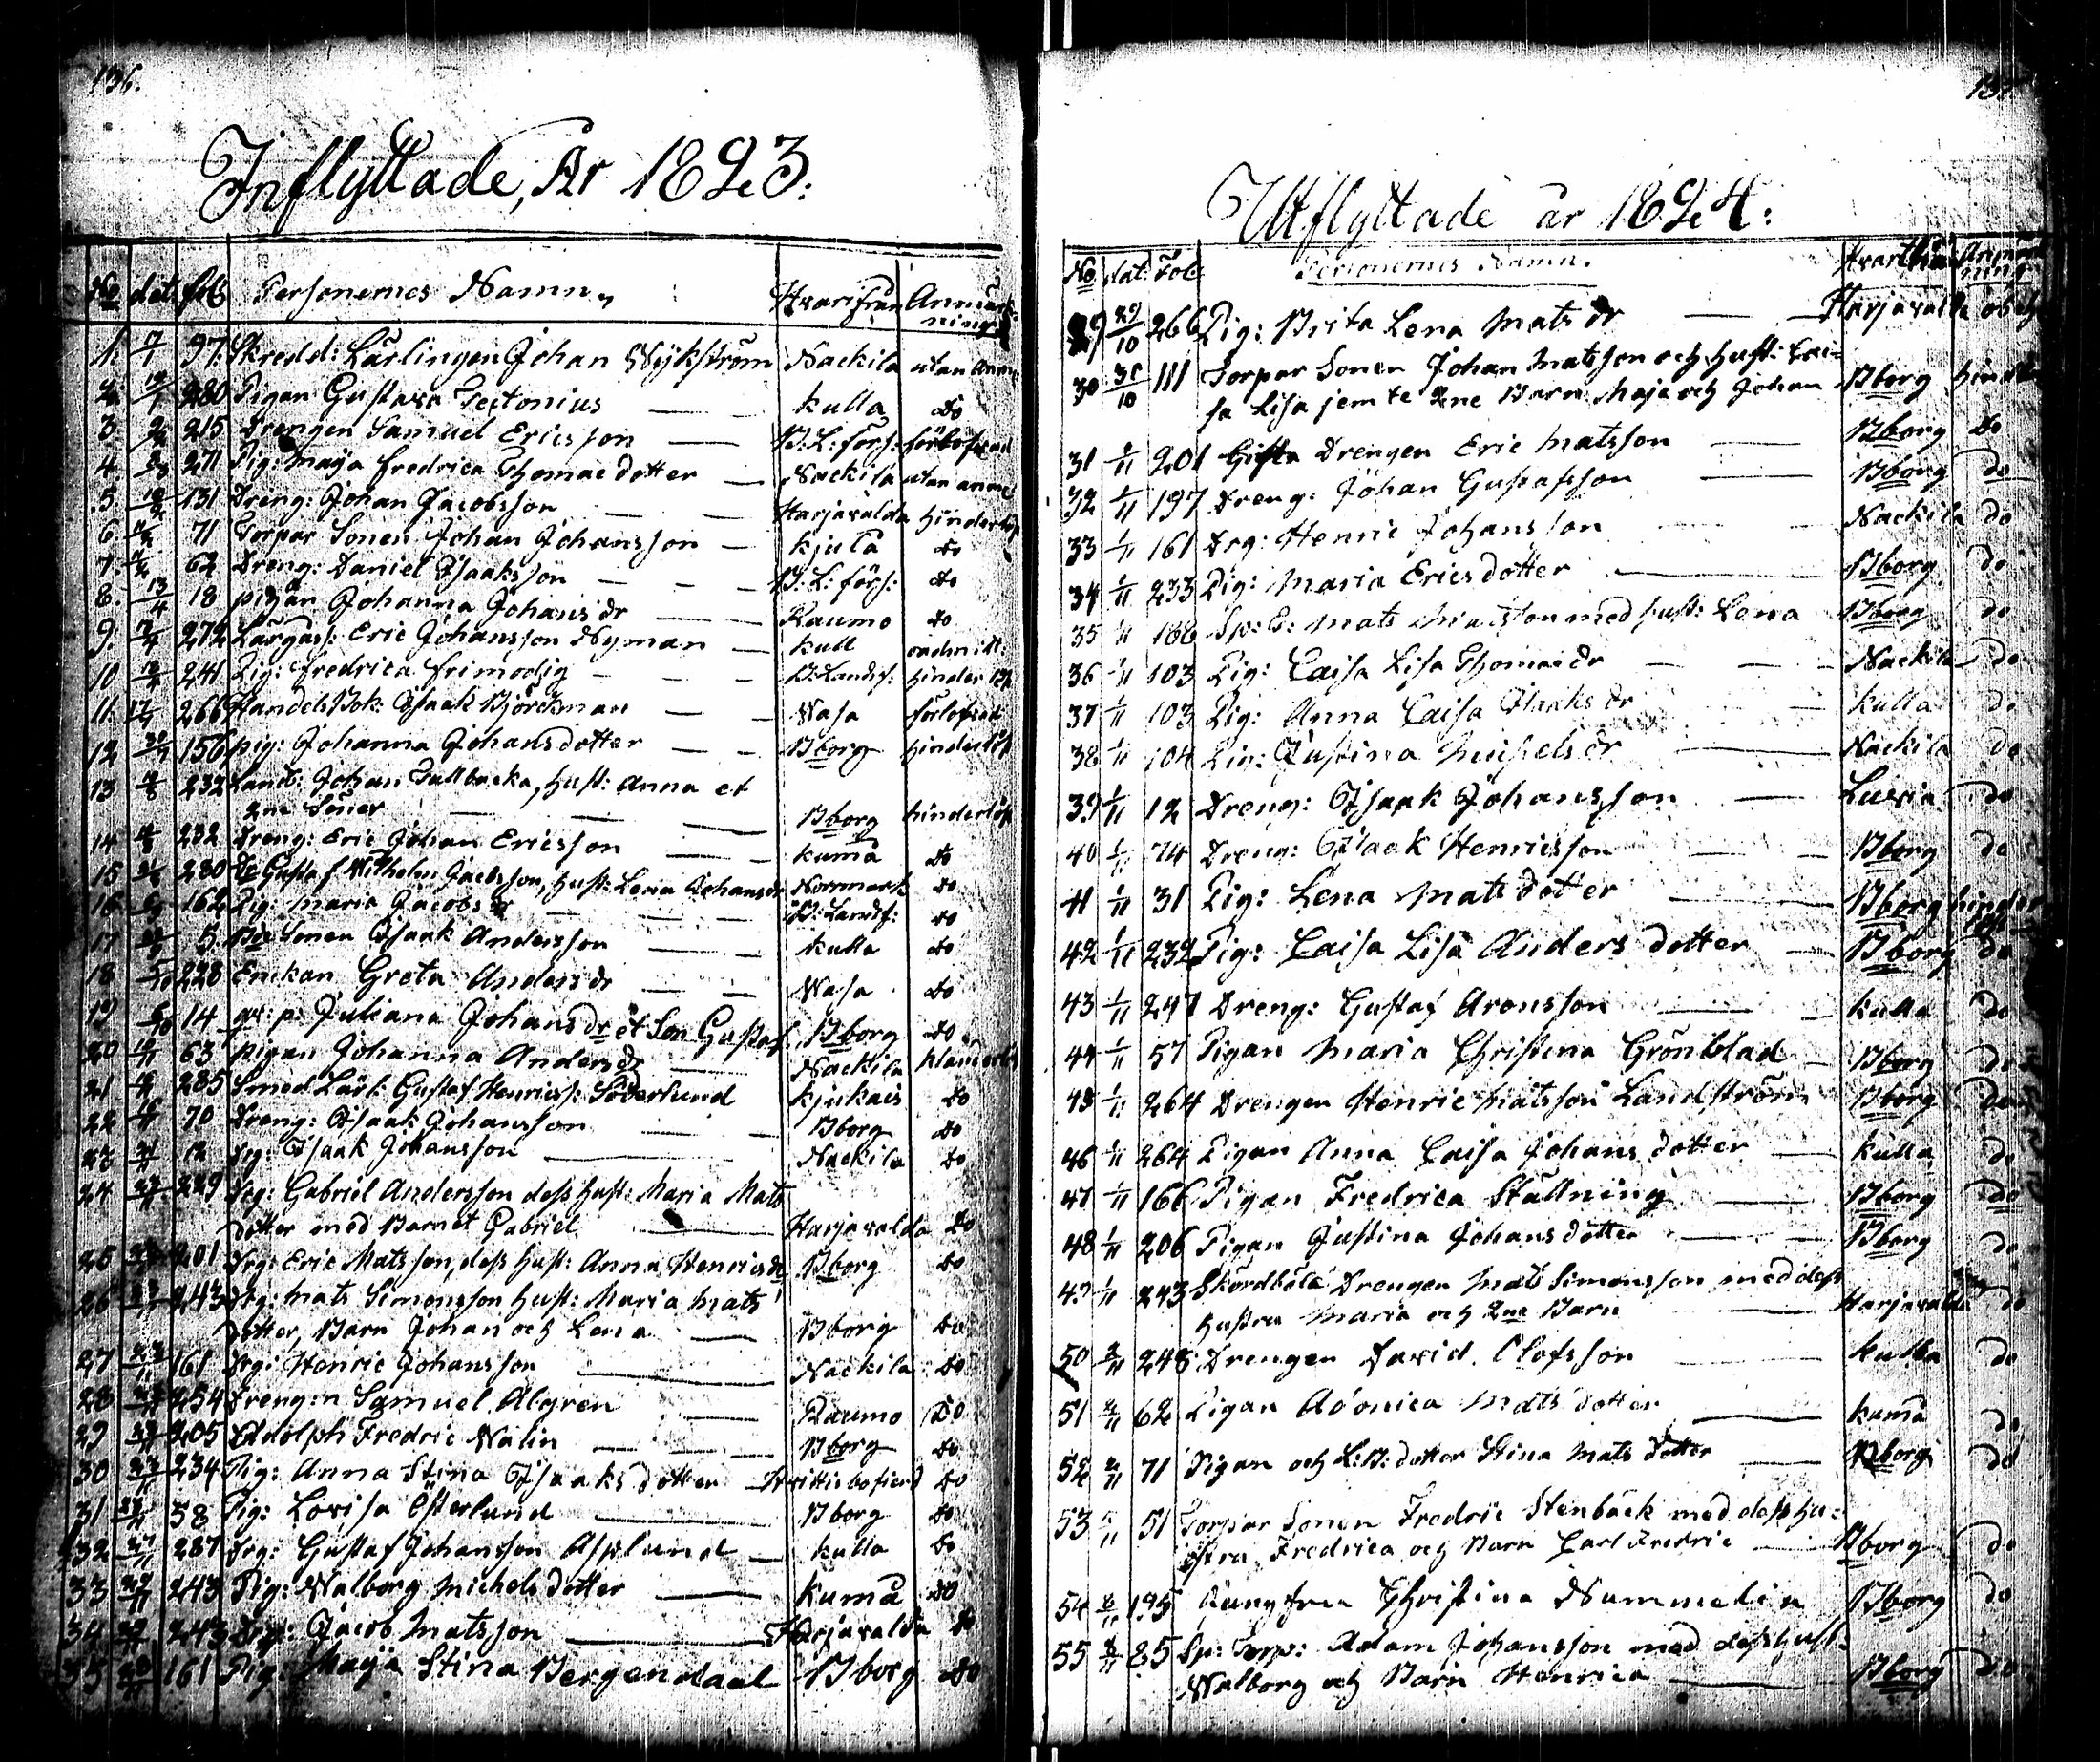 136.
Inflyttade, År 1823:
No dat: fol: Personernes Namn, Hvarifrån Anmärk-
ning.
1. 7/1 97. Skredd: Lärlingen Johan Wykström Nackila utan Anm:
2. 280 Pigan Gustava Tectonius kulla Do
3. 215 Drengen Samuel Ericsson B: L: förs: förlofvad
4. 271 Pig: Maja fredrica Thomae dotter Nackila utan anm:
5. 131 Dreng: Johan Jacobsson Harjavalda hinderlös
6. 71 Torpar Sonen Johan Johansson kjula Do
7. 62 Dreng: Daniel Isaaksson B: L: förs: Do
8. 13/4 18 pigan Johanna Johans dr Raumo Do
9. 272 Lärgass: Eric Johansson Nyman kull
10 241 Pig: fredrica frimodig B: Landsf: hinderlös
11. 266 Handels Bok: Isaak Björckman Wasa förlofvad
12 156 pig: Johanna Johans dotter Bborg hinderlös
13 232 Land: Johan Tallbacka, hust: Anna et
2ne Söner Bborg hinderlös
14 232 Dreng: Eric Johan Ericsson kumå Do
15 280 Dr Gustaf Wilhelm Jacobsson, hust: Lena Johansdr Norrmark Do
16 162 Pig: Maria Jacobs dr B: Landsf: Do
17 5 Sonen Isaak Andersson kulla Do
18 228 Enckan Greta Anders dr Wasa Do
19 14 qv: p: Juliana Johans dr et Son Gustaf Bborg Do
20 63 pigan Johanna Anders dr Nackila klanderlös
21 285 Smed Lärl: Gustaf Henricss: Söderlund kjukais Do
22 70 Dreng: Isaak Johansson Bborg Do
23 12 drg: Isaak Johansson Nackila Do
24 229 drg: Gabriel Andersson dess hust: Maria Mats
dotter med Barnet Gabriel Harjavalda Do
25 201 drg: Eric Matsson, dess hust: Anna Henricsdr Bborg Do
26 243 drg: mats Simonsson hust: Maria mats
dotter, Barn Johan och Lena Bborg Do
27 161 drg: Henric Johansson Nackila Do
28 254 Dreng:n Samuel Algren Raumo Do
29 205 Adolph Fredric Walin Bborg Do
30 234 Pig: Anna Stina Isaaks dotter Hvittisbofierd Do
31 58 Pig: Lovisa Österlund Bborg Do
32 287 drg: Gustaf Johansson Asplund kulla Do
33 243 Pig: Walborg Michels dotter kumå Do
34 243 Drg: Jacob Matsson Harjavalda Do
35 161 Pig: Maja Stina Bergendaal Bborg Do
137
Utflyttade år 1824:
No dat: Fol: Personernes Namn. Hvarthän Anmärk
ning
29 29/10 266 Pig: Brita Lena Mats dr Harjavalda
30 31/10 111 Torpar Sonen Johan Matsson och hust: Cai-
sa Lisa jemte 2ne Barn Maja och Johan Bborg hinderlös
31 1/11 201 Gifta Drengen Eric Matsson Bborg Do
32 1/11 197 Dreng: Johan Gustafsson Bborg do
33 1/11 161 Drg: Henric Johansson Nackila do
34 1/11 233 Pig: Maria Erics dotter Bborg do
35 1/11 188 Sp: B: Mats Matsson med hust: Lena Bborg do
36 1/11 103 Pig: Caisa Lisa Thomae dr Nackila do
37 1/11 103 Pig: Anna Caisa Isaaks dr kulla do
38 1/11 104 Pig: Justina Michels dr Nackila do
39 1/11 12 Dreng: Isaak Johansson Luvia do
40 1/11 74 Dreng: Isaak Henricsson Bborg do
41 1/11 31 Pig: Lena Mats dotter Bborg hinder
42 1/11 232 Pig: Caisa Lisa Anders dotter Bborg do
43 1/11 247 Dreng: Gustaf Aronsson kulla do
44 1/11 57 Pigan Maria Christina Grönblad Bborg do
45 1/11 264 Drengen Henric Matsson Landström Bborg do
46 1/11 264 Pigan Anna Caisa Johans dotter kulla do
47 1/11 166 Pigan Fredrica Stállning Bborg do
48 1/11 206 Pigan Justina Johans dotter Bborg do
49 1/11 243 Drengen Mats Simonsson med dess
hustru Maria och 2ne Barn Harjavalda do
50 2/11 248 Drengen David Olofsson kulla do
51 2/11 62 Pigan Mats dotter kumå do
52 2/11 71 Pigan och L: B: dotter Stina Mats dotter Bborg do
53 5/11 51 Torpar Sonen Fredric Stenbäck med dess hu-
stru Fredrica och Barn Carl Fredric Bborg do
54 195 Jungfru Christina Nummelin Bborg do
55 85 Sp: Torp: Adam Johansson med dess hust:
Walborg och Barn Henrica Bborg do